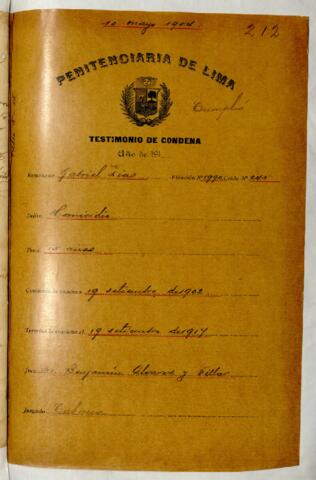 10 mayo 1904
212
PENITENCIARIA DE LIMA
Cumplió
TESTIMONIO DE CONDENA
Año de 191
Gabriel Dias Filiación Nº 1990 Celda Nº 245
Delito Homicidio
Pena 15 años
19 setiembre de 1902
Termina la condena el 19 setiembre de 1917
Juez Dr. Benjamin Alvarez y
Juzgado